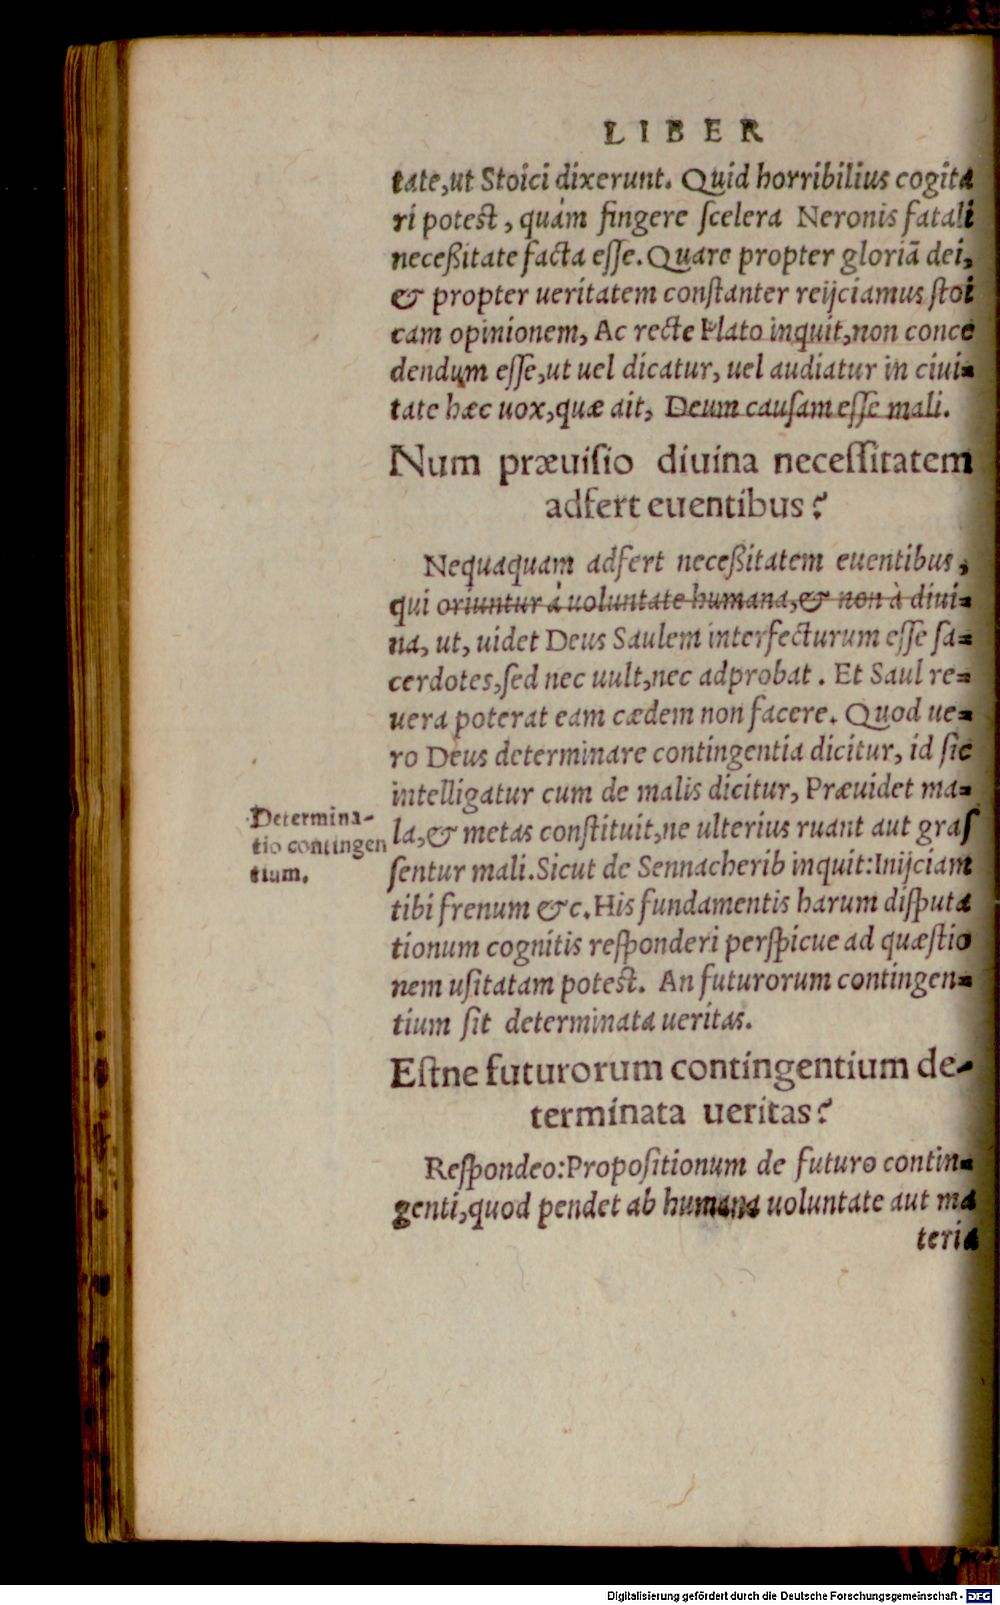 LIBER
tate,ut Stoici dixerunt. Quid horribilius cogita
ri potest, quàm fingere ſcelera Neronis fatali
neceßitate facta eſſe. Quare propter gloriã dei,
& propter ueritatem conſtanter reijciamus ſtoi
cam opinionem, Ac recte Plato inquit,non conce
dendum eſſe,ut uel dicatur, uel audiatur in ciui-
tate hæc uox,quæ ait, Deum cauſam eſſe mali.
Num præuiſio diuina neceſſitatem
adfert euentibus?
Nequaquam adfert neceßitatem euentibus,
qui oriuntur à uoluntate humana,& non à diui-
na, ut, uidet Deus Saulem interfecturum eſſe ſa-
cerdotes,ſed nec uult,nec adprobat. Et Saul re-
uera poterat eam cædem non facere. Quod ue-
ro Deus determinare contingentia dicitur, id ſic
intelligatur cum de malis dicitur, Præuidet ma-
la,& metas conſtituit,ne ulterius ruant aut graſ
ſentur mali.Sicut de Sennacherib inquit:Inijciam
tibi frenum &c.His fundamentis harum diſputa
tionum cognitis reſponderi perſpicue ad quæſtio
nem uſitatam potest. An futurorum contingen-
tium ſit determinata ueritas.
Determina-
tio contingen
tium.
Eſtne futurorum contingentium de-
terminata ueritas?
Reſpondeo:Propoſitionum de futuro contin-
genti,quod pendet ab humana uoluntate aut ma
teria
Digitalisierung gefördert durch die Deutsche Forschungsgemeinschaft - DFG